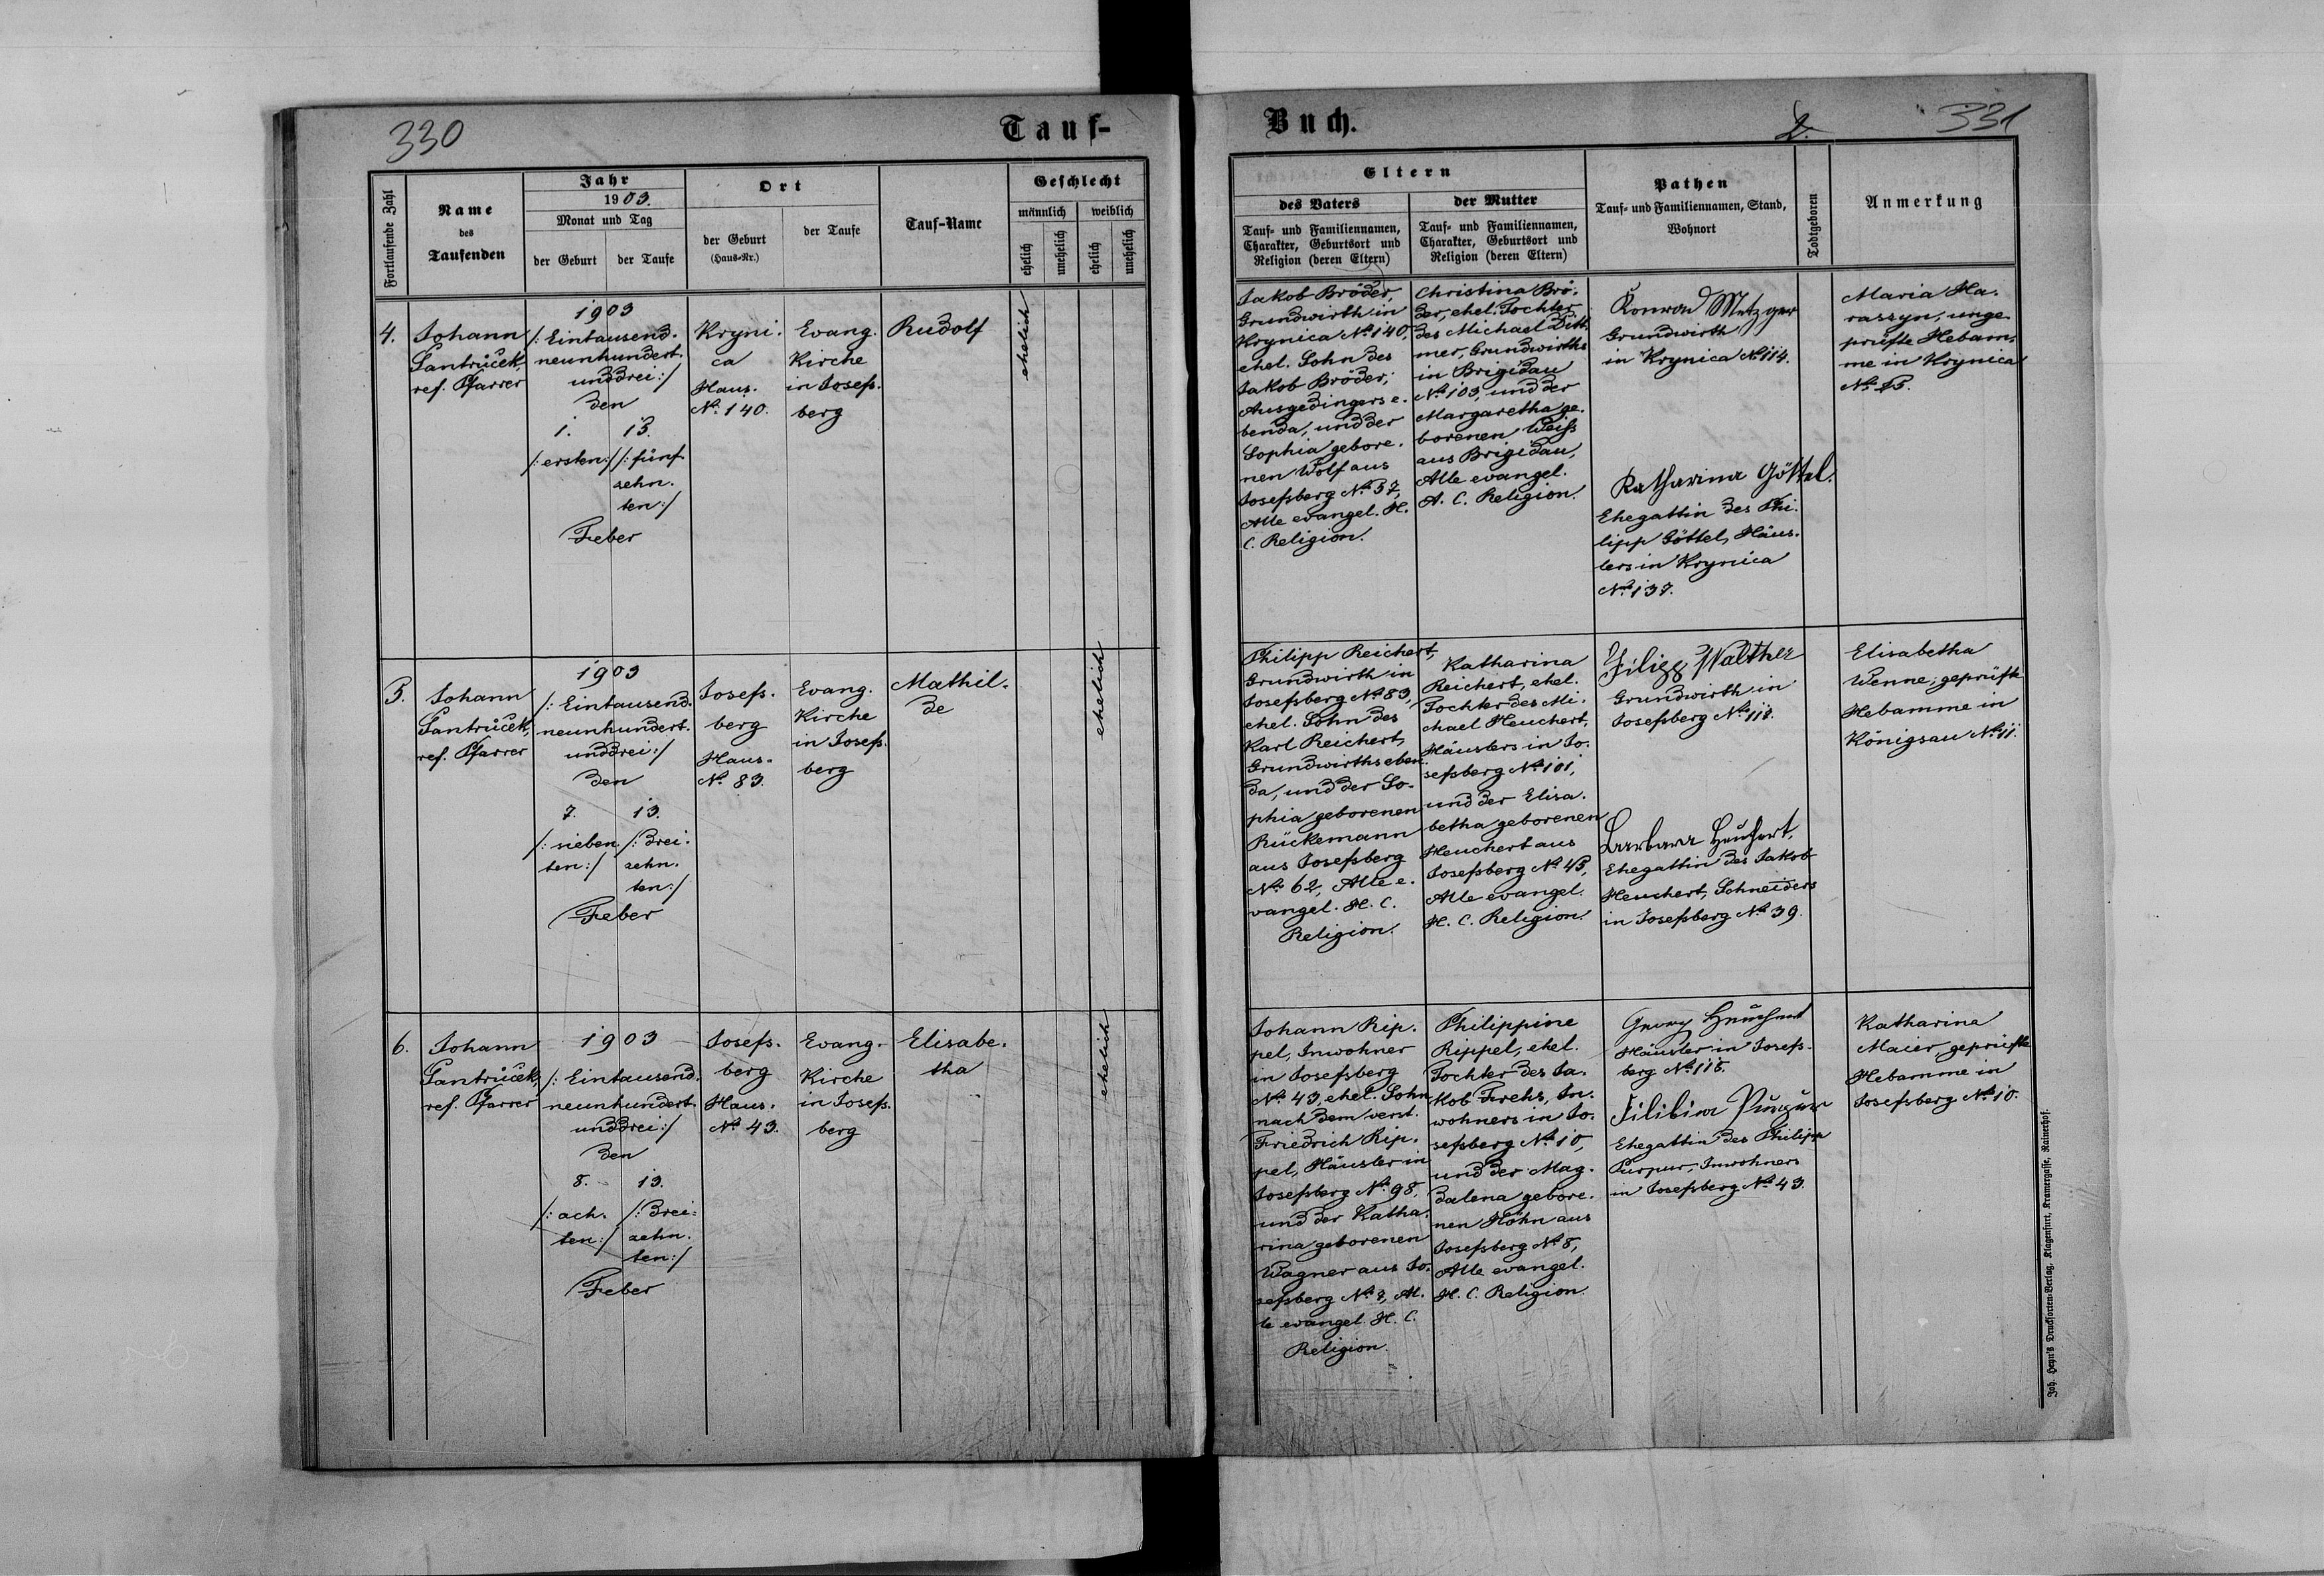 330
Tauf-
Fortlaufende Zahl
Name
des
Taufenden
Jahr
1903.
Monat und Tag
der Geburt
der Taufe
Ort
der Geburt
(Haus-Nr.)
der Taufe
Tauf-Name
Geschlecht
männlich
weiblich
ehelich
unehelich
ehelich
unehelich
4.
Johann
Jantruček,
ref. Pfarrer
1903
/: Eintausend-
neunhundert-
unddrei :/
den
1.
/: ersten :/
15.
/: fünf-
zehn-
ten :/
Feber
Kryni-
ca
Haus-
No. 140.
Evang.
Kirche
in Josefs-
berg
Rudolf
ehelich
5.
Johann
Jantruček,
ref. Pfarrer
1903
/: Eintausend-
neunhundert-
unddrei :/
den
7.
/: sieben-
ten :/
13.
/: drei-
zehn-
ten :/
Feber
Josefs-
berg
Haus-
No. 83.
Evang.
Kirche
in Josefs-
berg
Mathil-
de
ehelich
6.
Johann
Jantruček,
ref. Pfarrer
1903
/: Eintausend-
neunhundert-
unddrei :/
den
8.
/: ach-
ten :/
13.
/: drei-
zehn-
ten :/
Feber
Josefs-
berg
Haus-
No. 43.
Evang.
Kirche
in Josefs-
berg
Elisabe-
tha
ehelich
Buch.
331
Eltern
des Vaters
Tauf- und Familiennamen,
Charakter, Geburtsort und
Religion (deren Eltern)
der Mutter
Tauf- und Familiennamen,
Charakter, Geburtsort und
Religion (deren Eltern)
Pathen
Tauf- und Familiennamen, Stand,
Wohnort
Todtgeboren
Anmerkung
Jakob Bröder,
Grundwirth in
Krynica No. 140,
ehel. Sohn des
Jakob Bröder,
Ausgedingers e-
benda, und der
Sophia gebore-
nen Wolf aus
Josefsberg No. 57,
Alle evangel. H.
C. Religion.
Christina Brö-
der, ehel. Tochter
des Michael Ditt-
mer, Grundwirths
in Brigidau
No. 103, und der
Margaretha ge-
borenen Weiss
aus Brigidau,
Alle evangel.
A. C. Religion.
Konrad Metzger
Grundwirth
in Krynica No. 114.
Katharina Göttel.
Ehegattin des Phi-
lipp Göttel, Häus-
lers in Krynica
No. 137.
Maria Ha-
rassyn, unge-
prüfte Hebam-
me in Krynica
Philipp Reichert,
Grundwirth in
Josefsberg No. 83,
ehel. Sohn des
Karl Reichert,
Grundwirths eben-
da, und der So-
phia geborenen
Rückemann
aus Josefsberg
No. 62, Alle e-
vangel. H. C.
Religion.
Katharina
Reichert, ehel.
Tochter des Mi-
chael Heuchert,
Häuslers in Jo-
sefsberg No. 101,
und der Elisa-
betha geborenen
Heuchert aus
Josefsberg No. 45,
Alle evangel.
H. C. Religion.
Filipp Walther
Grundwirth in
Josefsberg No. 118.
Barbara Heuchert,
Ehegattin des Jakob
Heuchert, Schneiders
in Josefsberg No. 39.
Elisabetha
Wenne, geprüfte
Hebamme in
Königsau No. 11.
Johann Rip-
pel, Inwohner
in Josefsberg
No. 43, ehel. Sohn
nach dem verst.
Friedrich Rip-
pel, Häusler in
Josefsberg No. 98,
und der Katha-
rina geborenen
Wagner aus Jo-
sefsberg No. 3, Al-
le evangel. H. C.
Religion.
Philippine
Rippel, ehel.
Tochter des Ja-
kob Frehs, In-
wohners in Jo-
sefsberg No. 10,
und der Mag-
dalena gebore-
nen Höhn aus
Josefsberg No. 8,
Alle evangel.
H. C. Religion.
Georg Heuchert
Häusler in Josefs-
berg No. 115.
Filibina Purpur
Ehegattin des Philipp
Purpur, Inwohners
in Josefsberg No. 43.
Katharina
Maier, geprüfte
Hebamme in
Josefsberg No. 10.
Joh. Heyn's Drucksorten-Verlag, Klagenfurt, Kramergasse, Rainerhof.